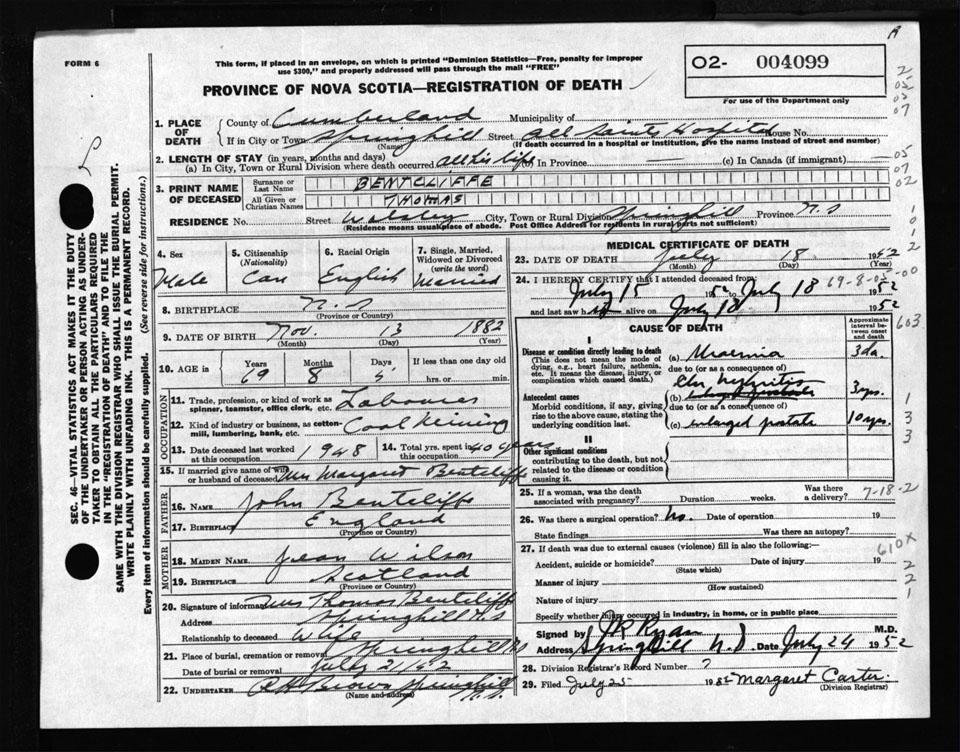 FORM 6
This form, if placed in an envelope, on which is printed "Dominion Statistics—Free, penalty for improper
use $300," and properly addressed will pass through the mail "FREE"
PROVINCE OF NOVA SCOTIA—REGISTRATION OF DEATH
O2- 004099
For use of the Department only
1. PLACE OF DEATH { County of Cumberland Municipality of
If in City or Town Springhill (Name) Street All Saints Hospital House No.
(If death occurred in a hospital or institution, give the name instead of street and number)
2. LENGTH OF STAY (in years, months and days)
(a) In City, Town or Rural Division where death occurred all his life (b) In Province — (c) In Canada (if immigrant) —
3. PRINT NAME OF DECEASED { Surname or Last Name BENTCLIFFE
All Given or Christian Names THOMAS
RESIDENCE No. Street City, Town or Rural Division Springhill Province N.S
(Residence means usual place of abode. Post Office Address for residents in rural parts not sufficient)
4. Sex Male
5. Citizenship (Nationality) Can
6. Racial Origin English
7. Single, Married, Widowed or Divorced (write the word) Married
8. BIRTHPLACE N.S
(Province or Country)
9. DATE OF BIRTH Nov. 13 1882
(Month) (Day) (Year)
10. AGE in Years 69 Months 8 Days 5 If less than one day old
hrs. or min.
OCCUPATION
11. Trade, profession, or kind of work as spinner, teamster, office clerk, etc. Labourer
12. Kind of industry or business, as cotton-mill, lumbering, bank, etc. Coal Mining
13. Date deceased last worked at this occupation 1948
14. Total yrs. spent in this occupation 40 years
15. If married give name of wife or husband of deceased Mrs Margaret Bentcliffe
FATHER
16. NAME John Bentcliffe
17. BIRTHPLACE England
(Province or Country)
MOTHER
18. MAIDEN NAME Jean Wilson
19. BIRTHPLACE Scotland
(Province or Country)
20. Signature of informant Mrs Thomas Bentcliffe
Address Springhill N.S
Relationship to deceased Wife
21. Place of burial, cremation or removal Springhill NS
Date of burial or removal July 21/52
22. UNDERTAKER Brown Springhill N.S.
(Name and address)
MEDICAL CERTIFICATE OF DEATH
23. DATE OF DEATH July 18 1952
(Month) (Day)
24. I HEREBY CERTIFY that I attended deceased from:
July 15 1952 to July 18 1952
and last saw h alive on July 18 1952
69-8-05-00
CAUSE OF DEATH
Approximate interval between onset and death
I
Disease or condition directly leading to death
(This does not mean the mode of dying, e.g., heart failure, asthenia, etc. It means the disease, injury, or complication which caused death.)
(a) Uraemia 3 da.
due to (or as a consequence of)
Antecedent causes
Morbid conditions, if any, giving rise to the above cause, stating the underlying condition last.
(b) Chr nephritis 3 yrs.
due to (or as a consequence of)
(c) enlarged prostate 10 yrs.
II
Other significant conditions
contributing to the death, but not related to the disease or condition causing it.
25. If a woman, was the death associated with pregnancy? Duration weeks. Was there a delivery?
7-18-2
26. Was there a surgical operation? No. Date of operation 19
State findings Was there an autopsy?
27. If death was due to external causes (violence) fill in also the following:—
Accident, suicide or homicide? Date of injury 19
(State which)
Manner of injury
(How sustained)
Nature of injury
Specify whether injury occurred in industry, in home, or in public place
Signed by JR Ryan M.D.
Address Springhill N.S Date July 24 1952
28. Division Registrar's Record Number ?
29. Filed July 25 1952 Margaret Carter
(Division Registrar)
603
610X
SEC. 46—VITAL STATISTICS ACT MAKES IT THE DUTY
OF THE UNDERTAKER OR PERSON ACTING AS UNDER-
TAKER TO OBTAIN ALL THE PARTICULARS REQUIRED
IN THE "REGISTRATION OF DEATH" AND TO FILE THE
SAME WITH THE DIVISION REGISTRAR WHO SHALL ISSUE THE BURIAL PERMIT.
WRITE PLAINLY WITH UNFADING INK. THIS IS A PERMANENT RECORD.
Every item of information should be carefully supplied. (See reverse side for instructions.)